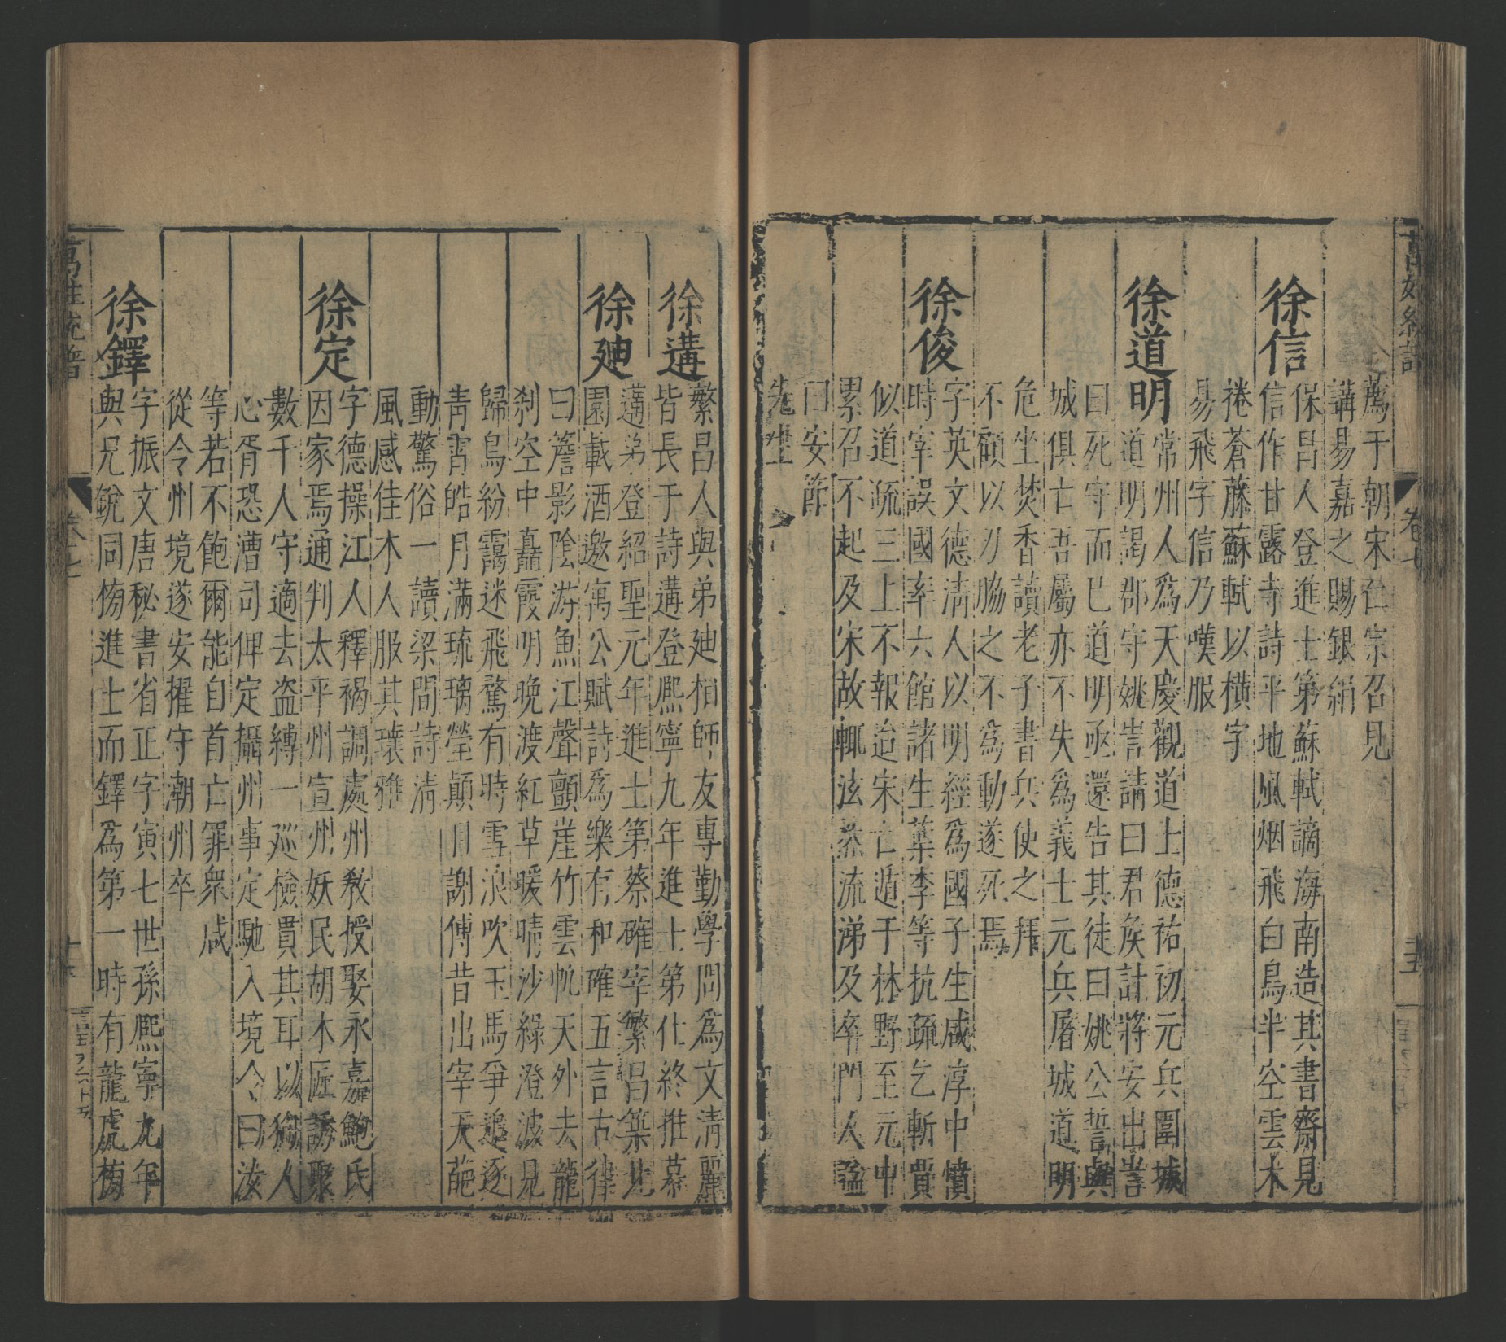 薦于朝宋仁宗召見
講易嘉之賜銀絹
徐信
保昌人登進士第蘇軾謫海南造其書齋見
信作甘露寺詩平地風烟飛白鳥半空雲木
捲蒼藤蘇軾以橫字
易飛字信乃嘆服
徐道明
常州人為天慶觀道士德祐初元兵圍城
道明謁郡守姚訔請曰君侯計將安出訔
曰死守而已道明亟還告其徒曰姚公誓與
城俱亡吾屬亦不失為義士元兵屠城道明
危坐焚香讀老子書兵使之拜
不顧以刃脇之不為動遂死焉
徐俊
字英文德清人以明經為國子生咸淳中憤
時宰誤國率六館諸生葉李等抗疏乞斬賈
似道疏三上不報迨宋亡遁于林野至元中
累召不起及宋故輒泫然流涕及卒門人謚
曰安節
先生
徐遘
繁昌人與弟廸相師友專勤學問為文清麗
皆長于詩遘登熙寧九年進士第仕終推慕
徐廸
遘弟登紹聖元年進士第蔡確宰繁昌築北
園載酒邀寓公賦詩為樂有和確五言古律
曰簷影陰游魚江聲顫崖竹雲帆天外去龍
刹空中矗霞明晚渡紅草暖晴沙綠澄波見
歸鳥紛靄迷飛鷺有時雪浪吹玉馬爭追逐
青霄皓月滿琉璃瑩顛謝傅昔出宰天葩
動驚俗一讀梁間詩清
風感佳木人服其瓌雅
徐定
字德操江人釋褐調處州教授娶永嘉鮑氏
因家焉通判太平州宣州妖民胡木匠誘聚
數千人守適去盜縛一巡檢貫其耳以狥人
心胥恐漕司俾定攝州事定馳入境令曰汝
等若不飽爾能自首亡罪衆咸
從令州境遂安擢守潮州卒
徐鐸
字振文唐秘書省正字寅七世孫熙寧九年
與兄銳同榜進士而鐸為第一時有龍虎榜
萬姓統譜
卷七